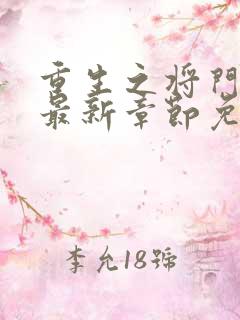 重生之将門
最新章節免
李允18號